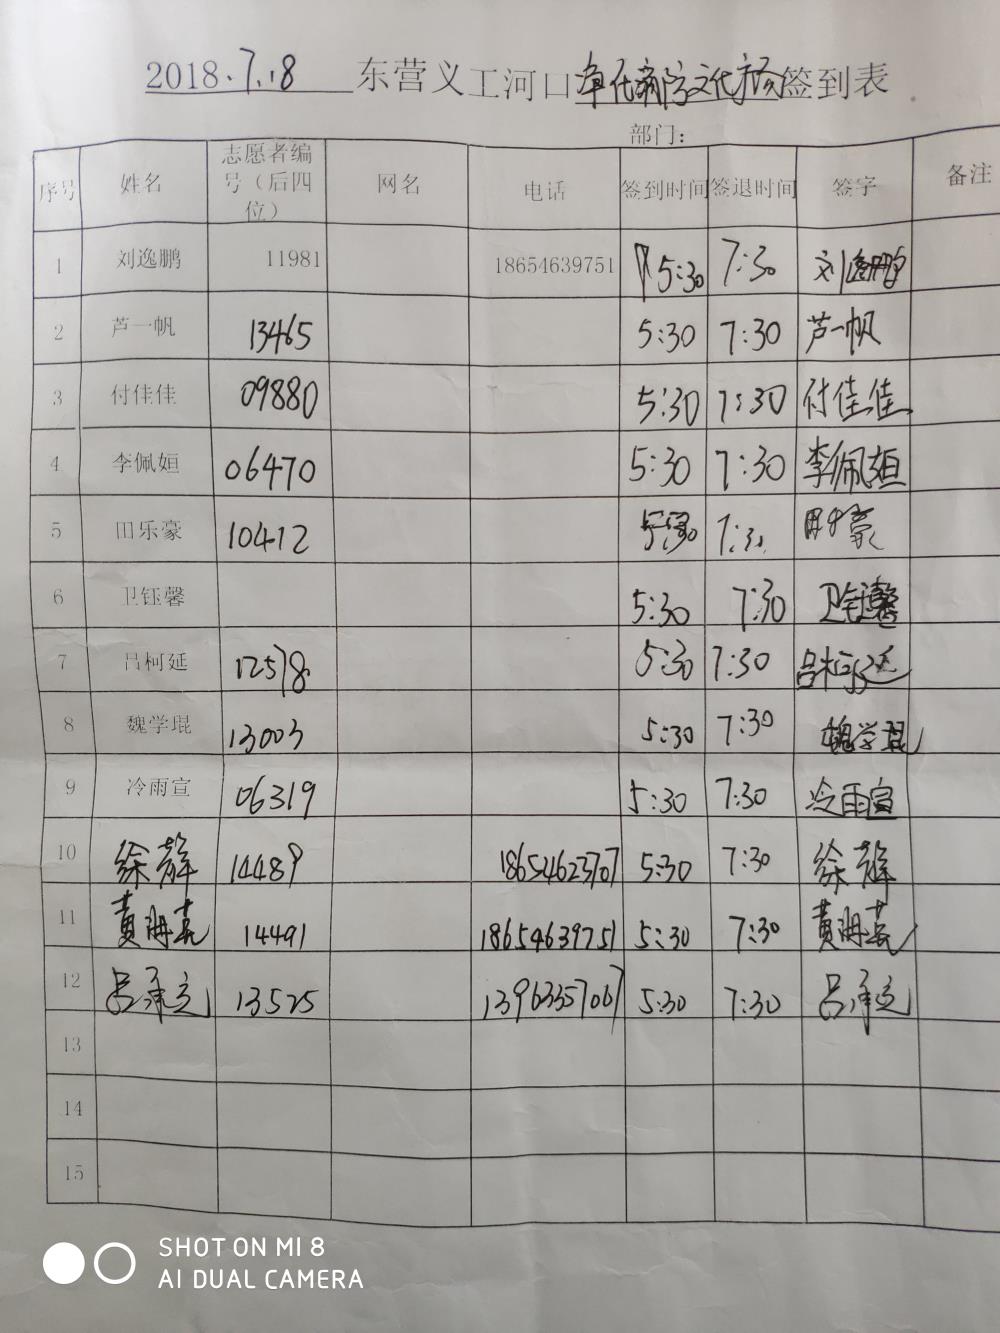 2018.7.18 东营义工河口 签到表
部门：
序号 姓名 志愿者编号（后四位） 网名 电话 签到时间 签退时间 签字 备注
1 刘逸鹏 11981 18654639751 5:30 7:30 刘逸鹏
2 芦一帆 13465 5:30 7:30 芦一帆
3 付佳佳 09880 5:30 7:30 付佳佳
4 李佩姮 06470 5:30 7:30 李佩姮
5 田乐豪 10412 7:30 田乐豪
6 卫钰馨 5:30 7:30 卫钰馨
7 吕柯延 12578 5:30 7:30 吕柯延
8 魏学琨 13003 5:30 7:30 魏学琨
9 冷雨宣 06319 5:30 7:30 冷雨宣
10 徐静 14489 18654623707 5:30 7:30 徐静
11 14491 18654639751 5:30 7:30
12 吕承立 13525 13963357067 5:30 7:30 吕承立
13
14
15
SHOT ON MI 8
AI DUAL CAMERA